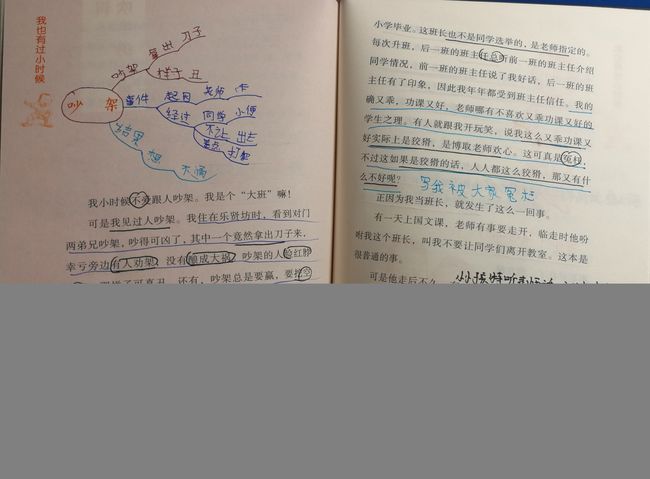 我也有过小时候
吵架
吵架
拿出刀子
样子 丑
事件
起因 老师
经过 同学 小便
不让 出去
差点 打架
结果 想
我小时候不爱跟人吵架。我是个“大班”嘛!
可是我见过人吵架。我住在乐贤坊时,看到对门
两弟兄吵架,吵得可凶了,其中一个竟然拿出刀子来,
幸亏旁边有人劝架,没有酿成大祸。吵架的人脸红脖
还有,吵架总是要赢,要
小学毕业。这班长也不是同学选举的,是老师指定的。
每次升班,后一班的班主任总听前一班的班主任介绍
同学情况,前一班的班主任说了我好话,后一班的班
主任有了印象,因此我年年都受到班主任信任。我的
确又乖,功课又好,老师哪有不喜欢又乖功课又好的
学生之理。有人就跟我开玩笑,说我这么又乖功课又
好实际上是狡猾,是博取老师欢心。这可真是冤枉,
不过这如果是狡猾的话,人人都这么狡猾,那又有什
么不好呢?
写我被大家冤枉
正因为我当班长,就发生了这么一回事。
有一天上国文课,老师有事要走开,临走时他吩
咐我这个班长,叫我不要让同学们离开教室。这本是
很普通的事。
可是他走后不久